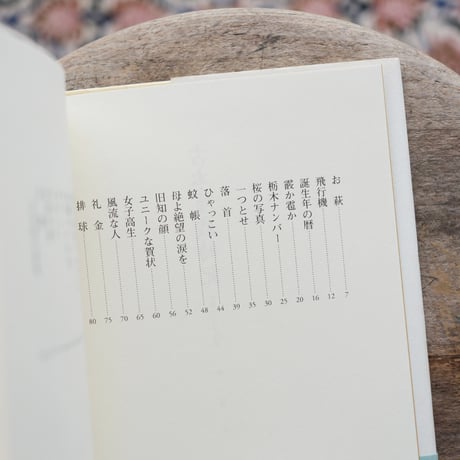 お萩 7
飛行機 12
誕生年の暦 16
霰か雹か 20
栃木ナンバー 25
桜の写真 30
一つとせ 35
落首 39
ひゃっこい 44
蚊帳 48
母よ絶望の涙を 52
旧知の顔 56
ユニークな賀状 60
女子高生 65
風流な人 70
礼金 75
排球 80